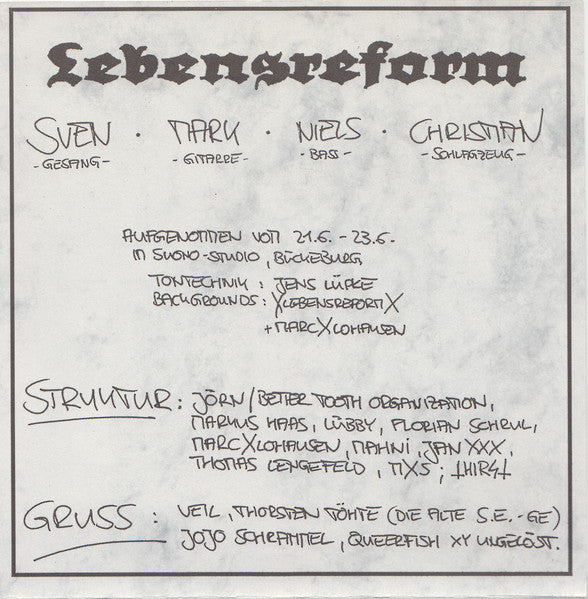 Lebensreform
SVEN · MARK · NIELS · CHRISTIAN
-GESANG- -GITARRE- -BASS- -SCHLAGZEUG-
AUFGENOMMEN VOM 21.6. - 23.6.
IM SUONO-STUDIO, BÜCKEBURG
TONTECHNIK : JENS LÜPKE
BACKGROUNDS : XLEBENSREFORMX
+ MARCXLOHAUSEN
STRUKTUR : JÖRN/BETTER TOOTH ORGANIZATION,
MARKUS HAAS, LÜBBY, FLORIAN SCHRUL,
MARCXLOHAUSEN, MAHNI, JAN XXX,
THOMAS LENGEFELD, MXS ;
GRUSS : VEIL, THORSTEN TÖHTE (DIE ALTE S.E.-GE)
JOJO SCHRAMMEL, QUEERFISH XY UNGELÖST.